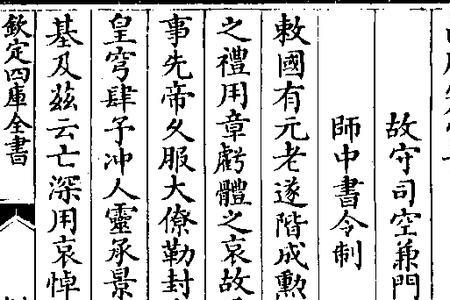 故守司空兼門
師中書令制
敕國有元老遂階成勲
之禮用章虧體之哀故
事先帝久服大僚勒封
皇穹肆予沖人靈承景
基及茲云亡深用哀悼
欽定四庫全書